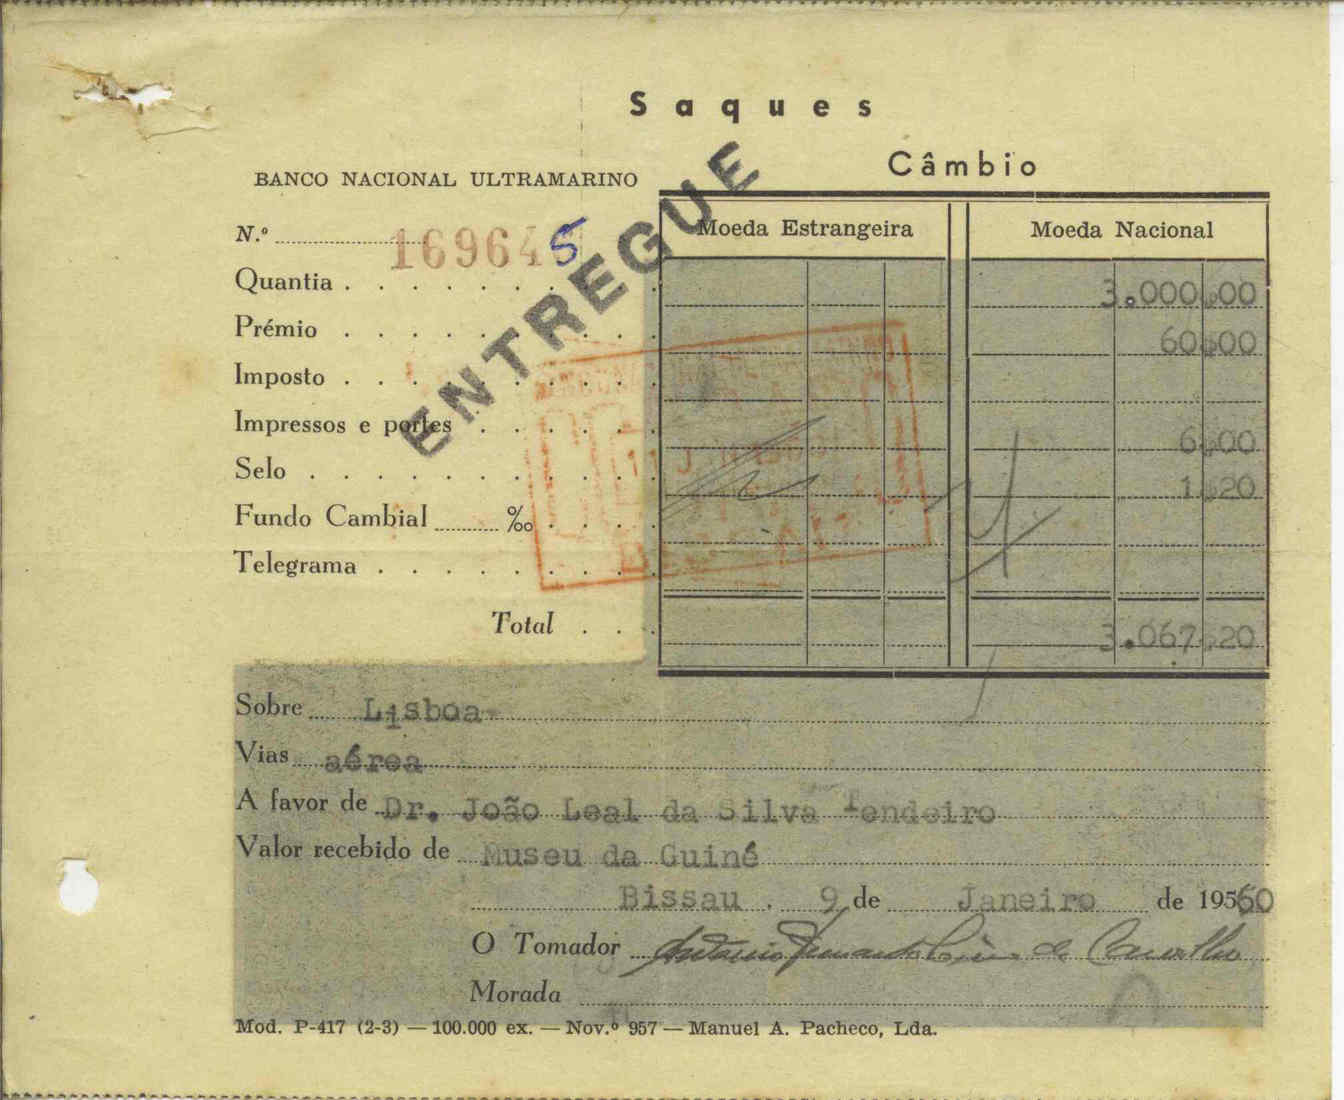 Saques
Câmbio
BANCO NACIONAL ULTRAMARINO
Moeda Estrangeira
Moeda Nacional
N.º 169645
ENTREGUE
Quantia 3.000.00
Prémio 60.00
Imposto
Impressos e portes 6.00
Selo 1.20
Fundo Cambial ‰
Telegrama
Total 3.067.20
BISSAU
Sobre Lisboa
Vias aérea
A favor de Dr. João Leal da Silva Tendeiro
Valor recebido de Museu da Guiné
Bissau . 9 de Janeiro de 19560
O Tomador António Fernando de Carvalho
Morada
Mod. P-417 (2-3) — 100.000 ex. — Nov.º 957 — Manuel A. Pacheco, Lda.